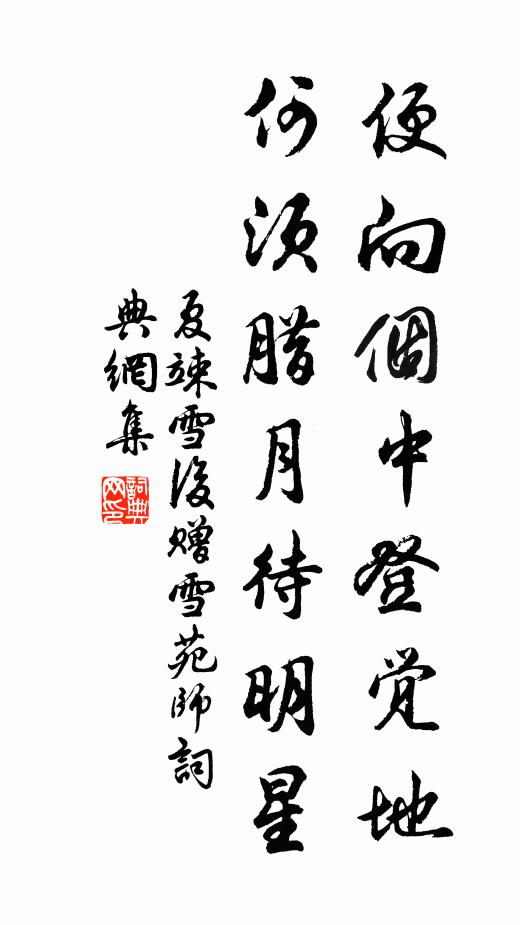 便向個中登觉地
何须腊月待明星
夏竦雪後赠雪苑師詞
典網集
詞典网印